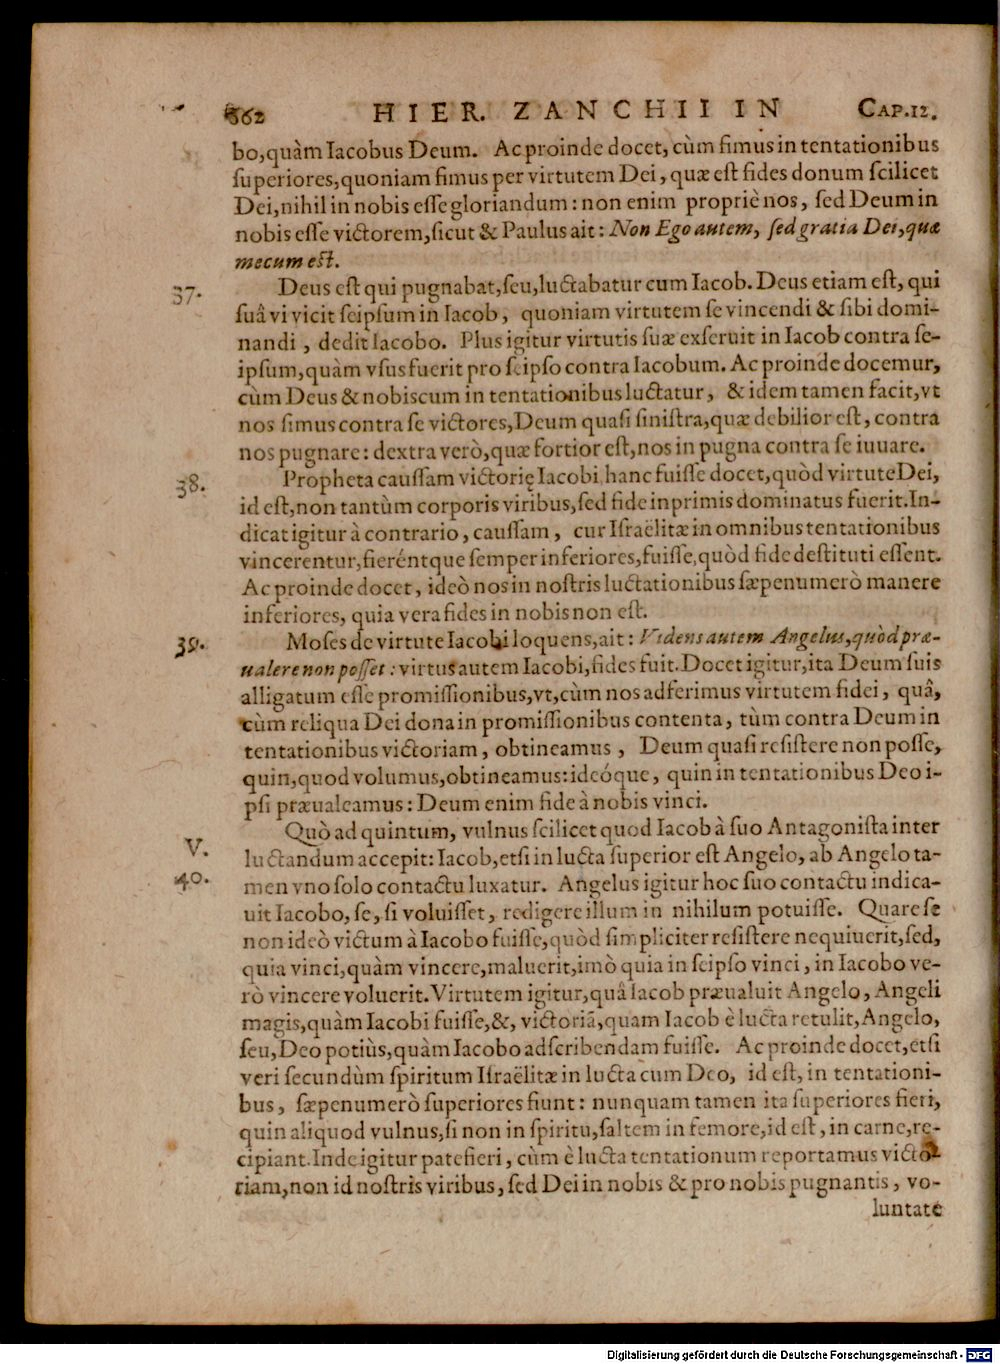 362 HIER. ZANCHII IN CAP.12.
bo,quàm Iacobus Deum. Ac proinde docet, cùm ſimus in tentationibus
ſuperiores,quoniam ſimus per virtutem Dei, quæ eſt fides donum ſcilicet
Dei,nihil in nobis eſſe gloriandum: non enim propriè nos, ſed Deum in
nobis eſſe victorem,ſicut & Paulus ait: Non Ego autem, ſed gratia Dei,quæ
mecum eſt.
37. Deus eſt qui pugnabat,ſeu,luctabatur cum Iacob. Deus etiam eſt, qui
ſuâ vi vicit ſeipſum in Iacob, quoniam virtutem ſe vincendi & ſibi domi-
nandi, dedit Iacobo. Plus igitur virtutis ſuæ exſeruit in Iacob contra ſe-
ipſum,quàm vſus fuerit pro ſeipſo contra Iacobum. Ac proinde docemur,
cùm Deus & nobiscum in tentationibus luctatur, & idem tamen facit,vt
nos ſimus contra ſe victores,Deum quaſi ſiniſtra,quæ debilior eſt, contra
nos pugnare: dextra verò,quæ fortior eſt,nos in pugna contra ſe iuuare.
38. Propheta cauſſam victorię Iacobi hanc fuiſſe docet,quòd virtute Dei,
id eſt,non tantùm corporis viribus,ſed fide inprimis dominatus fuerit.In-
dicat igitur à contrario, cauſſam, cur Iſraëlitæ in omnibus tentationibus
vincerentur,fieréntque ſemper inferiores,fuiſſe,quòd fide deſtituti eſſent.
Ac proinde docet, ideò nos in noſtris luctationibus ſæpenumerò manere
inferiores, quia vera fides in nobis non eſt.
39. Moſes de virtute Iacobi loquens,ait: Videns autem Angelus,quòd præ-
ualere non poſſet: virtus autem Iacobi,fides fuit.Docet igitur,ita Deum ſuis
alligatum eſſe promiſſionibus,vt,cùm nos adferimus virtutem fidei, quâ,
cùm reliqua Dei dona in promiſſionibus contenta, tùm contra Deum in
tentationibus victoriam, obtineamus, Deum quaſi reſiſtere non poſſe,
quin,quod volumus,obtineamus:ideóque, quin in tentationibus Deo i-
pſi præualeamus: Deum enim fide à nobis vinci.
V. Quò ad quintum, vulnus ſcilicet quod Iacob à ſuo Antagoniſta inter
luctandum accepit: Iacob,etſi in lucta ſuperior eſt Angelo, ab Angelo ta-
40. men vno ſolo contactu luxatur. Angelus igitur hoc ſuo contactu indica-
uit Iacobo, ſe, ſi voluiſſet, redigere illum in nihilum potuiſſe. Quare ſe
non ideò victum à Iacobo fuiſſe,quòd ſimpliciter reſiſtere nequiuerit,ſed,
quia vinci,quàm vincere,maluerit,imò quia in ſeipſo vinci, in Iacobo ve-
rò vincere voluerit. Virtutem igitur,quâ Iacob præualuit Angelo, Angeli
magis,quàm Iacobi fuiſſe,&, victoriã,quam Iacob è lucta retulit,Angelo,
ſeu,Deo potiùs,quàm Iacobo adſcribendam fuiſſe. Ac proinde docet,etſi
veri ſecundùm ſpiritum Iſraëlitæ in lucta cum Deo, id eſt, in tentationi-
bus, ſæpenumerò ſuperiores fiunt: nunquam tamen ita ſuperiores fieri,
quin aliquod vulnus,ſi non in ſpiritu,ſaltem in femore,id eſt, in carne,re-
cipiant.Inde igitur patefieri, cùm è lucta tentationum reportamus victo-
riam,non id noſtris viribus, ſed Dei in nobis & pro nobis pugnantis, vo-
luntate
Digitalisierung gefördert durch die Deutsche Forschungsgemeinschaft - DFG